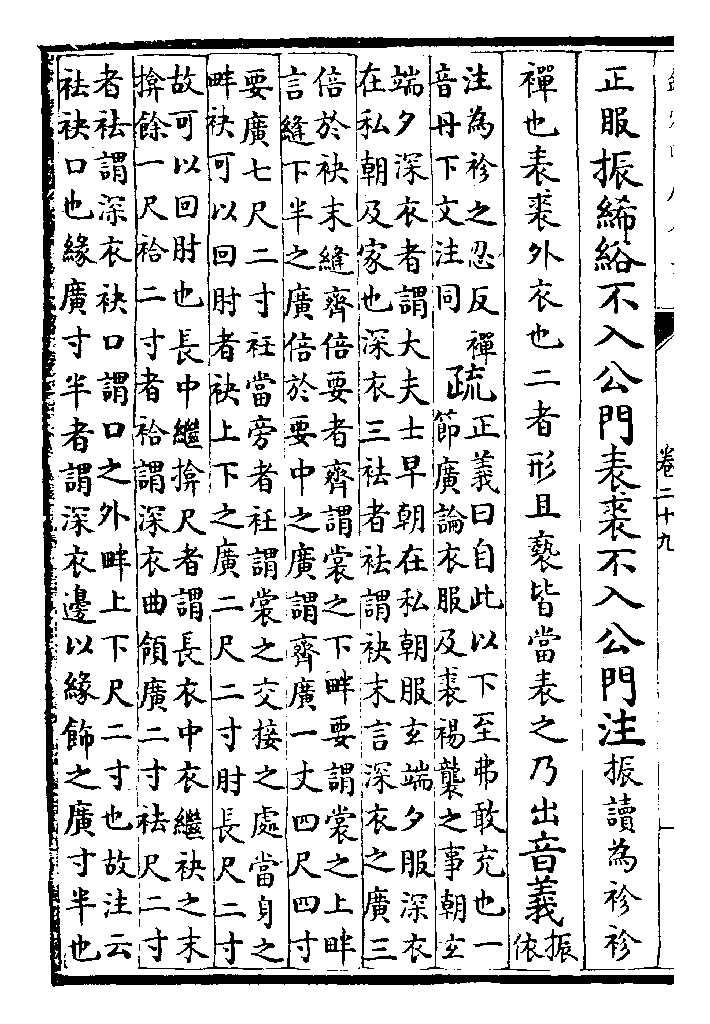 正服振絺綌不入公門表裘不入公門注振讀為袗袗
襌也表裘外衣也二者形且褻皆當表之乃出音義振
依
注為袗之忍反襌
音丹下文注同
疏
正義曰自此以下至弗敢充也一
節廣論衣服及裘裼襲之事朝玄
端夕深衣者謂大夫士早朝在私朝服玄端夕服深衣
在私朝及家也深衣三袪者袪謂袂末言深衣之廣三
倍於袂末縫齊倍要者齊謂裳之下畔要謂裳之上畔
言縫下半之廣倍於要中之廣謂齊廣一丈四尺四寸
要廣七尺二寸衽當旁者衽謂裳之交接之處當身之
畔袂可以回肘者袂上下之廣二尺二寸肘長尺二寸
故可以回肘也長中繼揜尺者謂長衣中衣繼袂之末
揜餘一尺袷二寸者袷謂深衣曲領廣二寸袪尺二寸
者袪謂深衣袂口謂口之外畔上下尺二寸也故注云
袪袂口也緣廣寸半者謂深衣邊以緣飾之廣寸半也
卷二十九